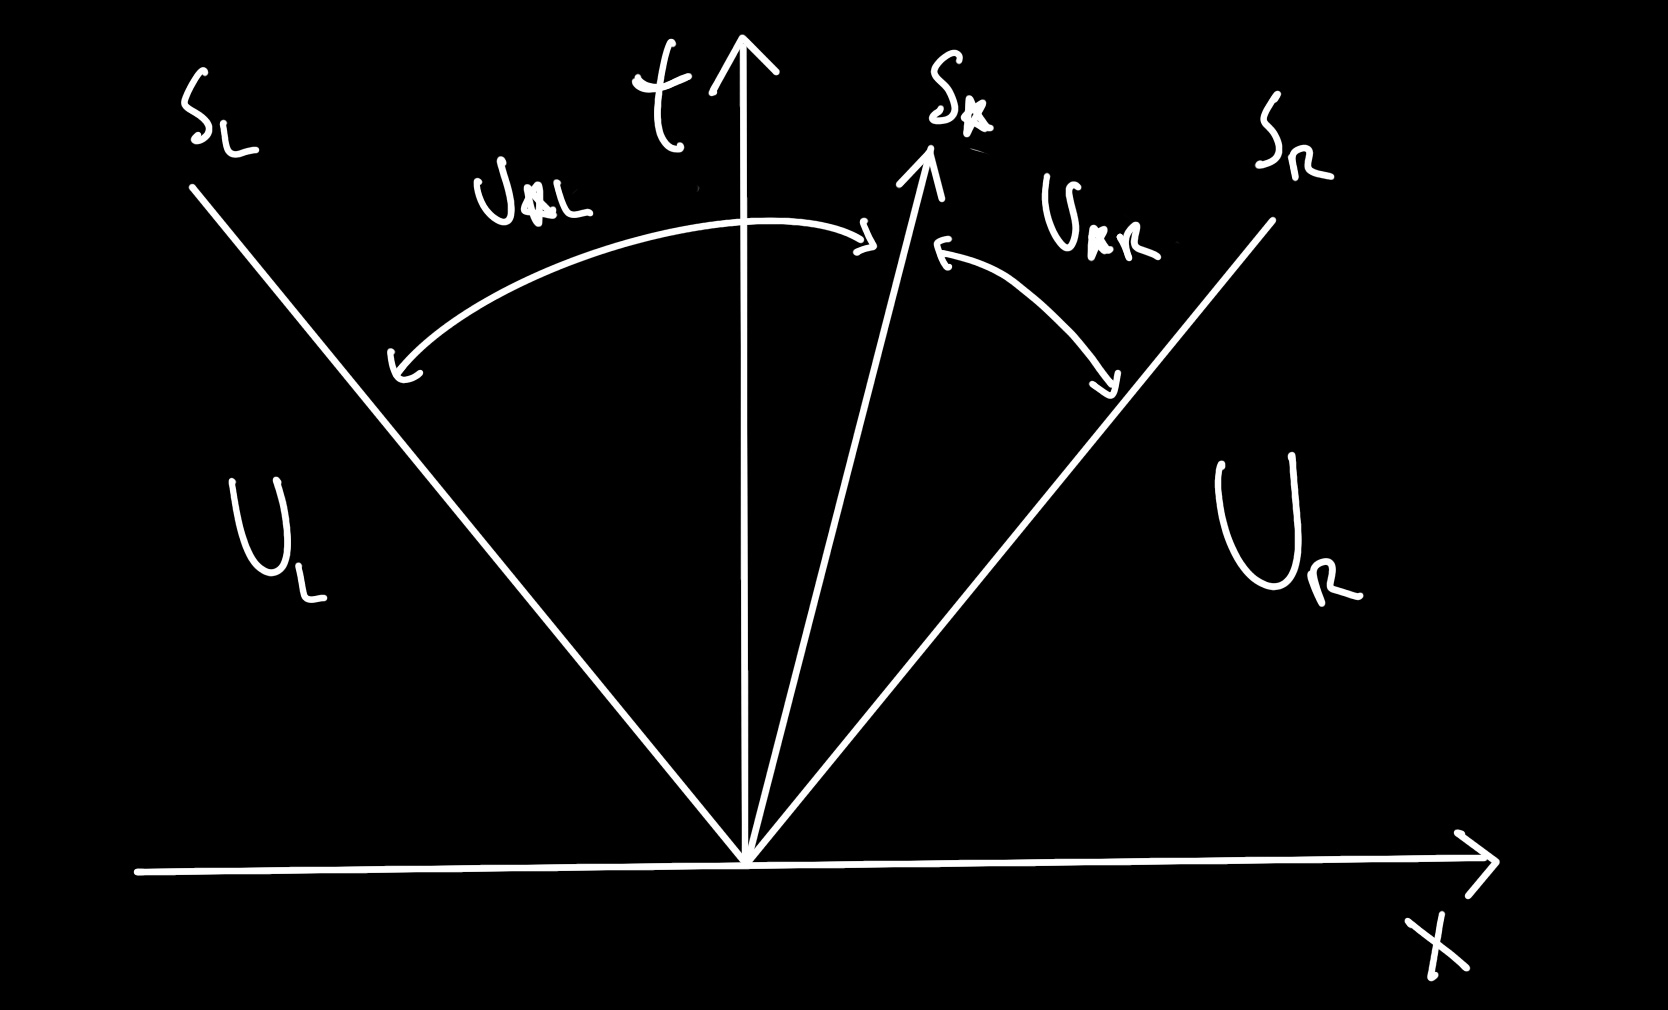 S_L
t
S_*
S_R
U_*L
U_*R
U_L
U_R
x